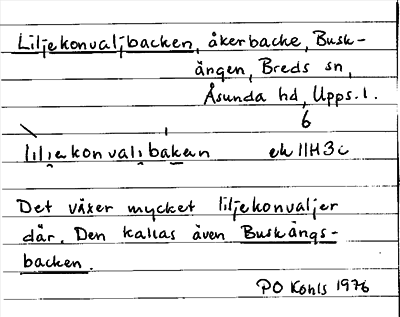 Liljekonvaljbacken, åkerbacke, Busk-
ängen, Breds sn,
Åsunda hd, Upps. l.
6
liljekonvalibakan ek 11H3c
Det växer mycket liljekonvaljer
där. Den kallas även Buskängs-
backen.
PO Kohls 1976